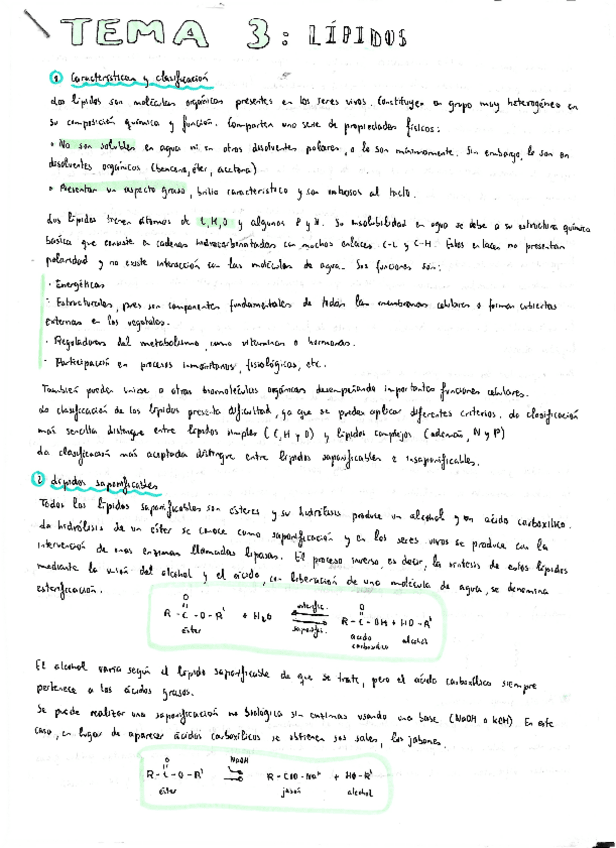 TEMA 3: LÍPIDOS
1 Características y clasificación
Los lípidos son moléculas orgánicas presentes en los seres vivos. Constituyen un grupo muy heterogéneo en
su composición química y función. Comparten una serie de propiedades físicas:
• No son solubles en agua ni en otros disolventes polares, o lo son mínimamente. Sin embargo, lo son en
disolventes orgánicos (benceno, éter, acetona)
• Presentan un aspecto graso, brillo característico y son untuosos al tacto.
Los lípidos tienen átomos de C, H, O y algunos P y N. Su insolubilidad en agua se debe a su estructura química
básica que consiste en cadenas hidrocarbonatadas con muchos enlaces C-C y C-H. Estos enlaces no presentan
polaridad y no existe interacción con las moléculas de agua. Sus funciones son:
· Energéticas
· Estructurales, pues son componentes fundamentales de todas las membranas celulares o forman cubiertas
externas en los vegetales.
· Reguladoras del metabolismo, como vitaminas o hormonas.
· Participación en procesos inmunitarios, fisiológicos, etc.
También pueden unirse a otras biomoléculas orgánicas desempeñando importantes funciones celulares.
La clasificación de los lípidos presenta dificultad, ya que se pueden aplicar diferentes criterios. La clasificación
más sencilla distingue entre lípidos simples (C, H y O) y lípidos complejos (además, N y P)
La clasificación más aceptada distingue entre lípidos saponificables e insaponificables.
2 Lípidos saponificables
Todos los lípidos saponificables son ésteres y su hidrólisis produce un alcohol y un ácido carboxílico.
La hidrólisis de un éster se conoce como saponificación y en los seres vivos se produce con la
intervención de unas enzimas llamadas lipasas. El proceso inverso, es decir, la síntesis de estos lípidos
mediante la unión del alcohol y el ácido, con liberación de una molécula de agua, se denomina
esterificación.
O esterific. O
R-C-O-R' + H₂O R-C-OH + HO-R'
éster saponific. ácido carboxílico alcohol
El alcohol varía según el lípido saponificable de que se trate, pero el ácido carboxílico siempre
pertenece a los ácidos grasos.
Se puede realizar una saponificación no biológica sin enzimas usando una base (NaOH o KOH) En este
caso, en lugar de aparecer ácidos carboxílicos se obtienen sus sales, los jabones.
O NaOH
R-C-O-R' R-COO-Na⁺ + HO-R'
éster jabón alcohol